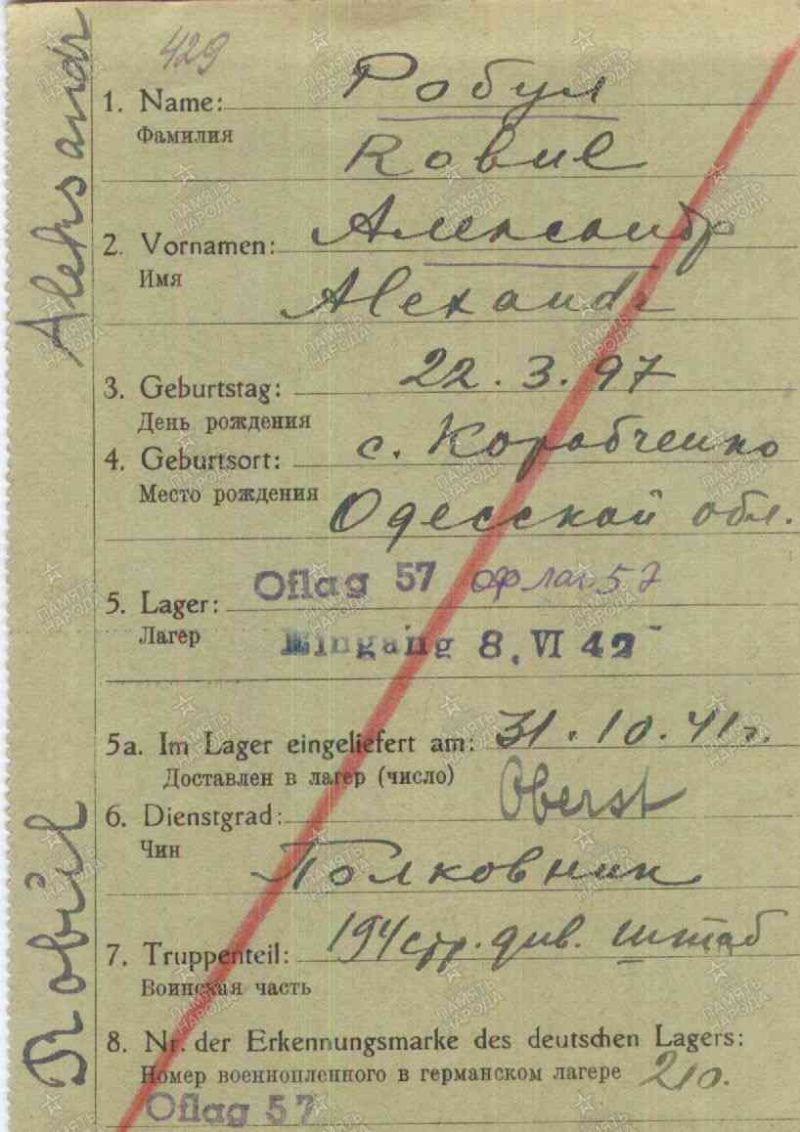 429
Aleksandr
Robul
1. Name: Робул
Фамилия Robul
2. Vornamen: Александр
Имя Alexandr
3. Geburtstag: 22.3.97
День рождения
4. Geburtsort: с. Корабченко
Место рождения Одесской обл.
5. Lager: Oflag 57 офлаг 57
Лагер Eingang 8. VI 42
5a. Im Lager eingeliefert am: 31.10.41г.
Доставлен в лагер (число)
6. Dienstgrad: Oberst
Чин Полковник
7. Truppenteil: 194 стр. див. штаб
Воинская часть
8. Nr. der Erkennungsmarke des deutschen Lagers:
Номер военнопленного в германском лагере 210.
Oflag 57
ПАМЯТЬ НАРОДА